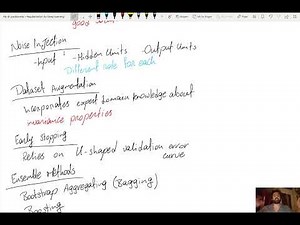 good
Noise Injection
-Input -Hidden Units -Output Units
Different sets for each
Dataset Augmentation
Incorporates expert domain knowledge about
invariance properties
Early Stopping
Relies on U-shaped validation error
curve
Ensemble Methods
Bootstrap Aggregating (Bagging)
Boosting